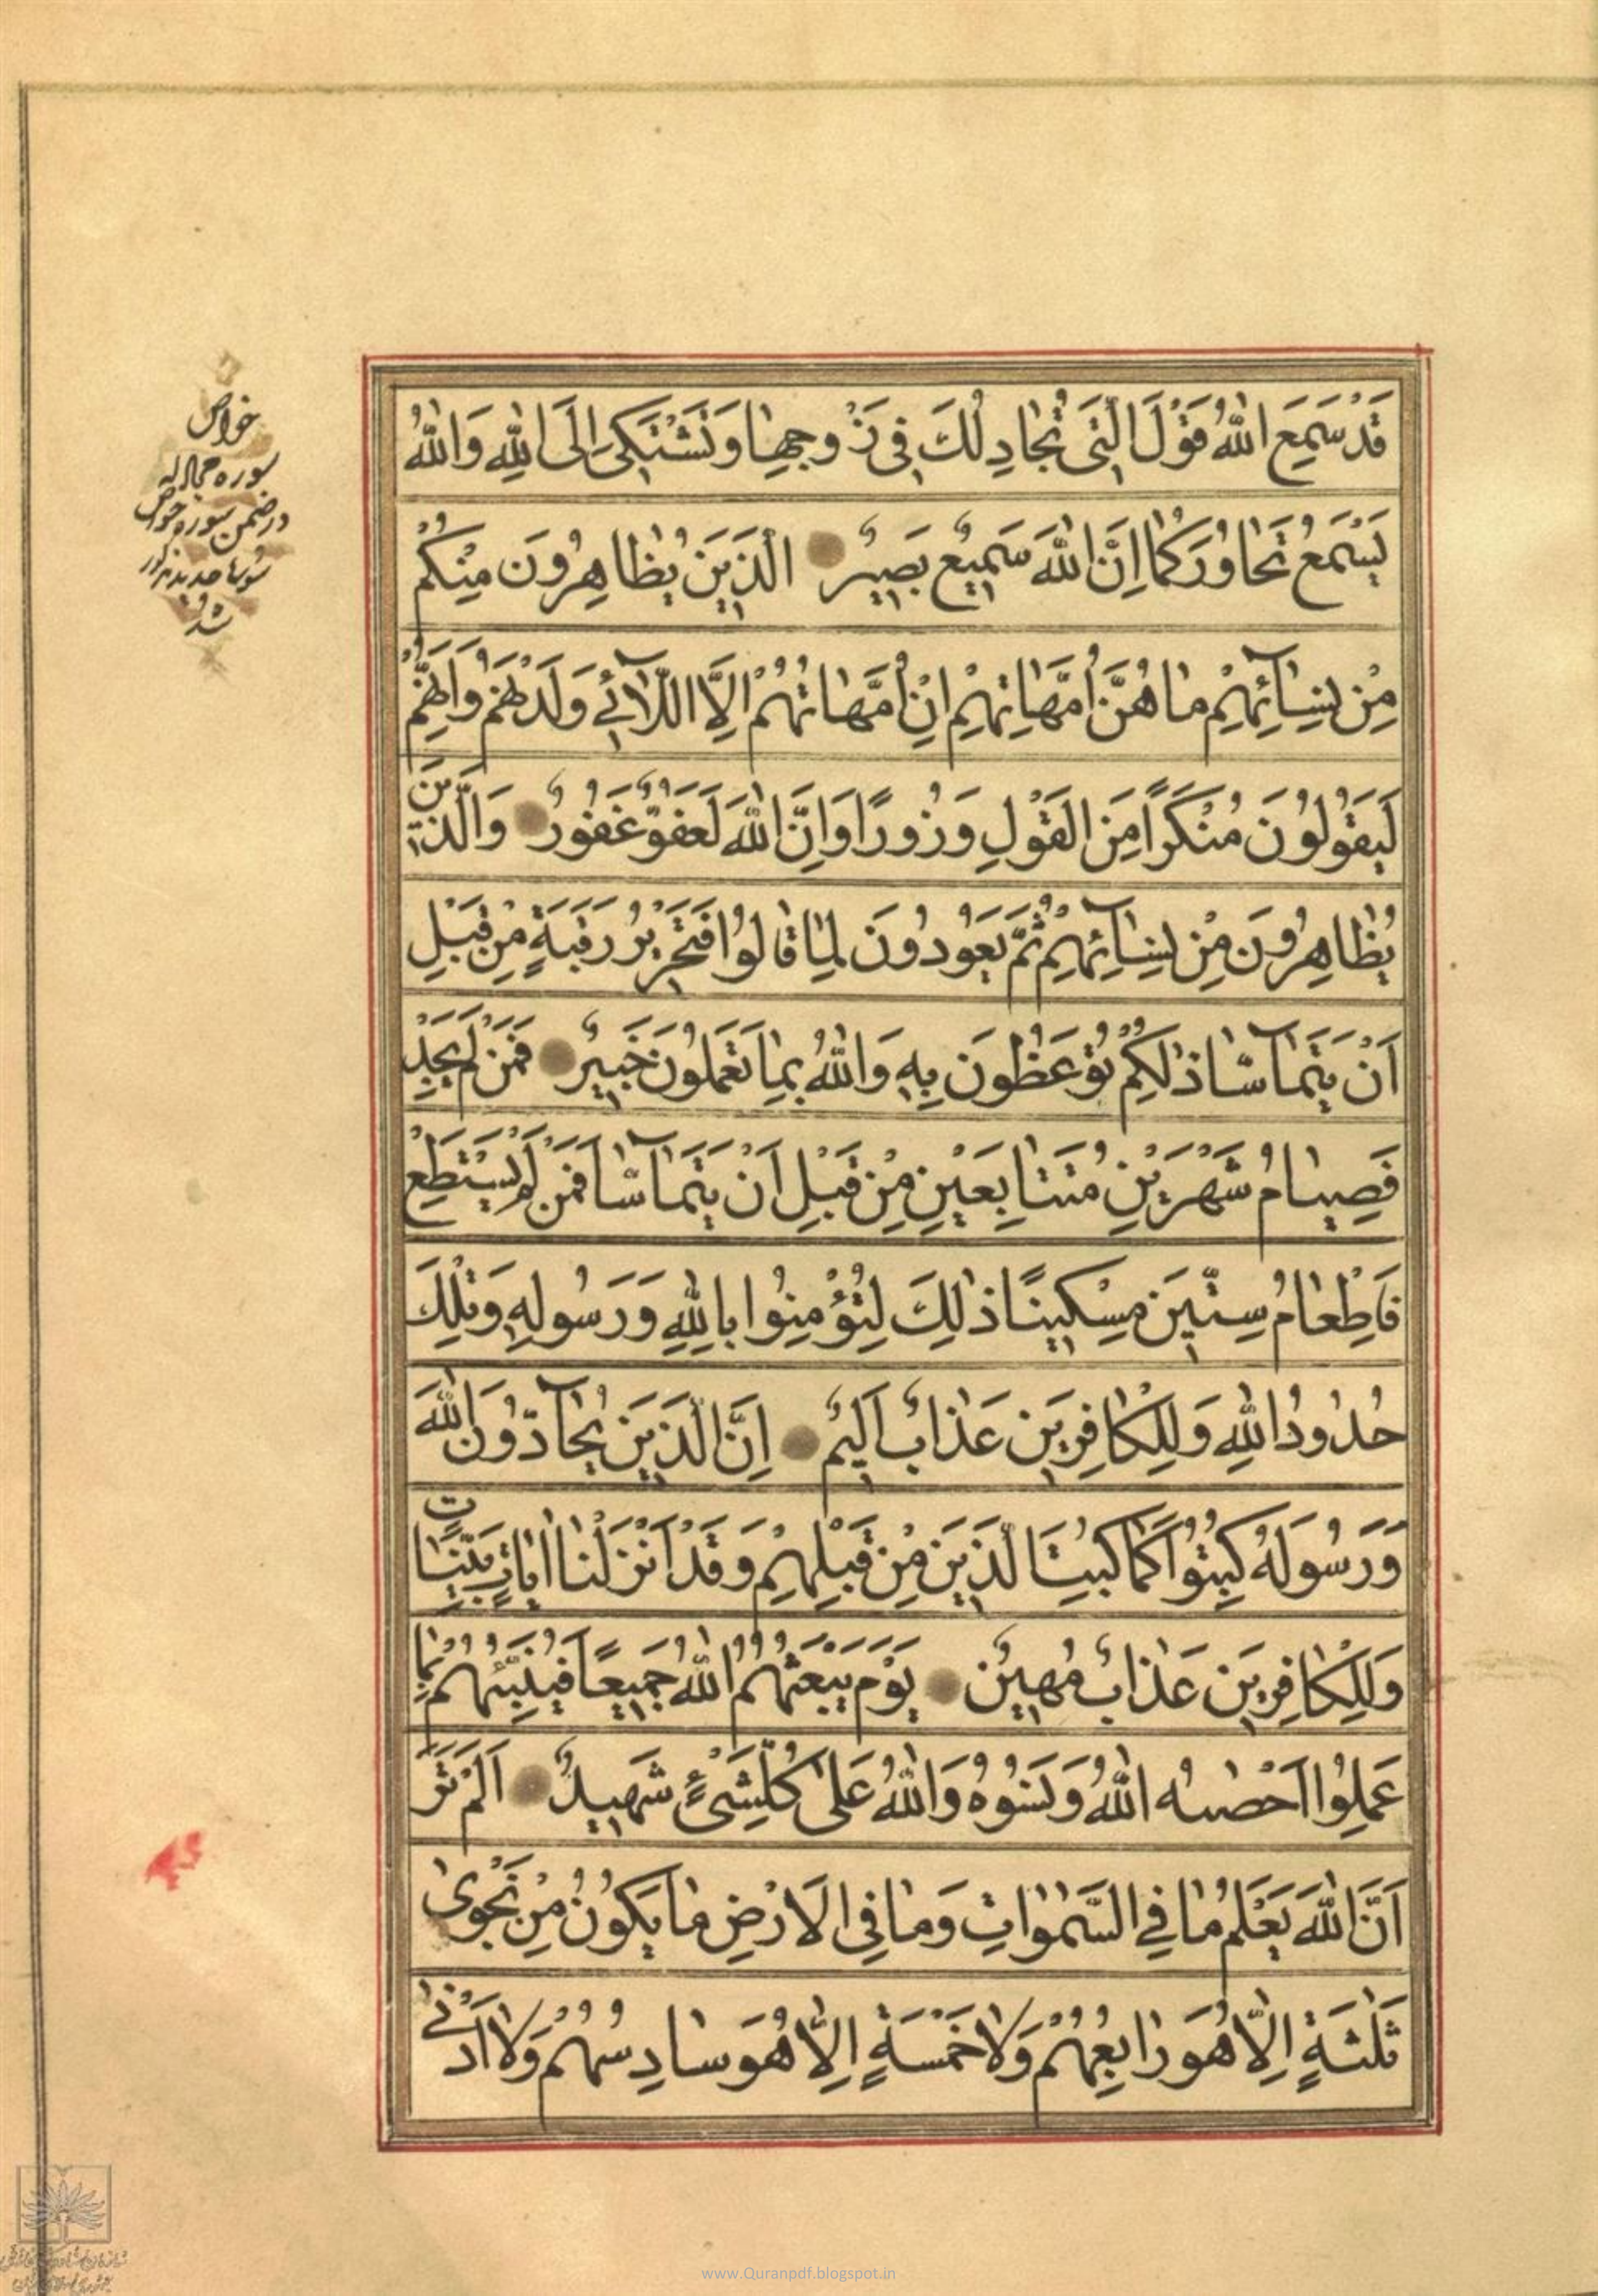 قَدْ سَمِعَ اللهُ قَوْلَ الَّتِي تُجَادِلُكَ فِي زَوْجِهَا وَتَشْتَكِي إِلَى اللهِ وَاللهُ
يَسْمَعُ تَحَاوُرَكُمَا إِنَّ اللهَ سَمِيعٌ بَصِيرٌ الَّذِينَ يُظَاهِرُونَ مِنْكُمْ
مِنْ نِسَائِهِمْ مَا هُنَّ أُمَّهَاتِهِمْ إِنْ أُمَّهَاتُهُمْ إِلَّا اللَّائِي وَلَدْنَهُمْ وَإِنَّهُمْ
لَيَقُولُونَ مُنْكَرًا مِنَ الْقَوْلِ وَزُورًا وَإِنَّ اللهَ لَعَفُوٌّ غَفُورٌ وَالَّذِينَ
يُظَاهِرُونَ مِنْ نِسَائِهِمْ ثُمَّ يَعُودُونَ لِمَا قَالُوا فَتَحْرِيرُ رَقَبَةٍ مِنْ قَبْلِ
أَنْ يَتَمَاسَّا ذٰلِكُمْ تُوعَظُونَ بِهِ وَاللهُ بِمَا تَعْمَلُونَ خَبِيرٌ فَمَنْ لَمْ يَجِدْ
فَصِيَامُ شَهْرَيْنِ مُتَتَابِعَيْنِ مِنْ قَبْلِ أَنْ يَتَمَاسَّا فَمَنْ لَمْ يَسْتَطِعْ
فَإِطْعَامُ سِتِّينَ مِسْكِينًا ذٰلِكَ لِتُؤْمِنُوا بِاللهِ وَرَسُولِهِ وَتِلْكَ
حُدُودُ اللهِ وَلِلْكَافِرِينَ عَذَابٌ أَلِيمٌ إِنَّ الَّذِينَ يُحَادُّونَ اللهَ
وَرَسُولَهُ كُبِتُوا كَمَا كُبِتَ الَّذِينَ مِنْ قَبْلِهِمْ وَقَدْ أَنْزَلْنَا آيَاتٍ بَيِّنَاتٍ
وَلِلْكَافِرِينَ عَذَابٌ مُهِينٌ يَوْمَ يَبْعَثُهُمُ اللهُ جَمِيعًا فَيُنَبِّئُهُمْ بِمَا
عَمِلُوا أَحْصٰيهُ اللهُ وَنَسُوهُ وَاللهُ عَلٰى كُلِّ شَيْءٍ شَهِيدٌ أَلَمْ تَرَ
أَنَّ اللهَ يَعْلَمُ مَا فِي السَّمٰوَاتِ وَمَا فِي الْأَرْضِ مَا يَكُونُ مِنْ نَجْوٰى
ثَلٰثَةٍ إِلَّا هُوَ رَابِعُهُمْ وَلَا خَمْسَةٍ إِلَّا هُوَ سَادِسُهُمْ وَلَا أَدْنٰى
خواص
سوره مجادله
در ضمن سوره خواص
سوره حدید مذکور
شد
www.Quranpdf.blogspot.in